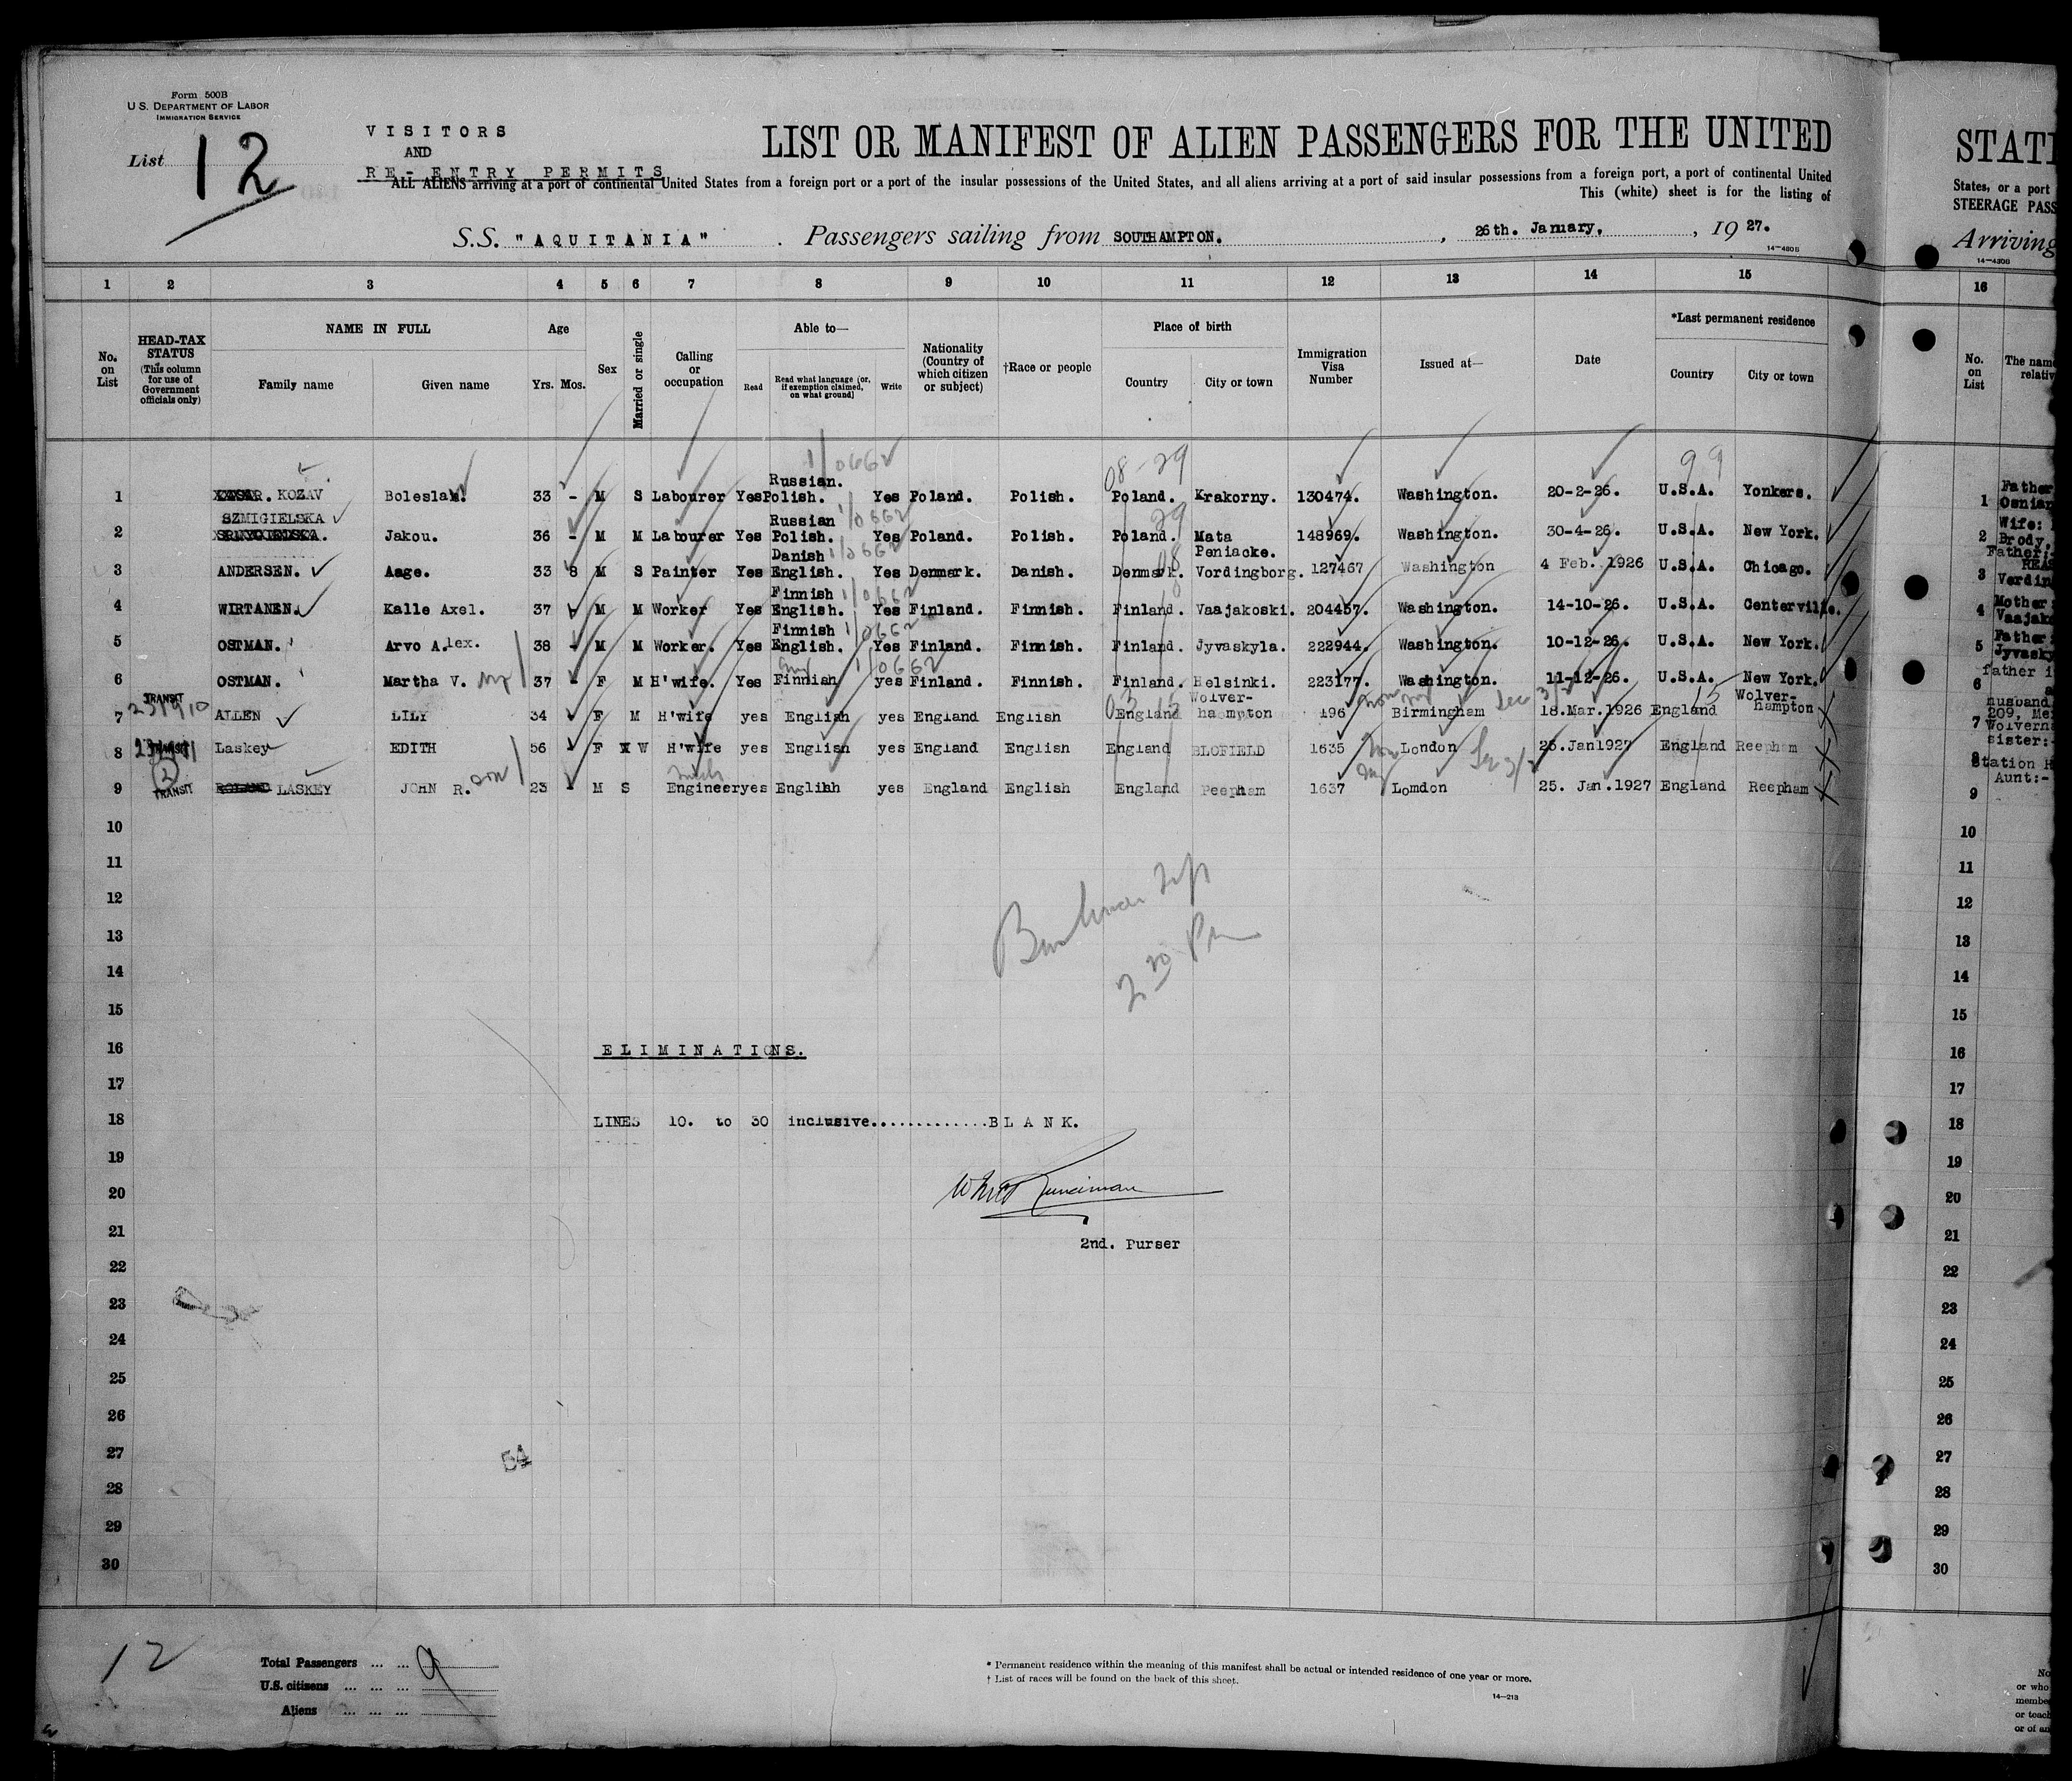 Form 500B
U.S. DEPARTMENT OF LABOR
IMMIGRATION SERVICE
List 12
VISITORS
AND
RE-ENTRY PERMITS
LIST OR MANIFEST OF ALIEN PASSENGERS FOR THE UNITED
ALL ALIENS arriving at a port of continental United States from a foreign port or a port of the insular possessions of the United States, and all aliens arriving at a port of said insular possessions from a foreign port, a port of continental United
This (white) sheet is for the listing of
S.S. "AQUITANIA" . Passengers sailing from SOUTHAMPTON. , 26th. January, , 19 27.
14-480B
STATE
States, or a port
STEERAGE PASS
Arriving
14-480B
1 2 3 4 5 6 7 8 9 10 11 12 13 14 15 16
No. on List
HEAD-TAX STATUS (This column for use of Government officials only)
NAME IN FULL
Family name Given name
Age
Yrs. Mos.
Sex
Married or single
Calling or occupation
Able to—
Read
Read what language [or, if exemption claimed, on what ground]
Write
Nationality (Country of which citizen or subject)
†Race or people
Place of birth
Country City or town
Immigration Visa Number
Issued at—
Date
*Last permanent residence
Country City or town
No. on List
The name relativ
1/0662 08-29 99
Russian.
1 KOZAV Boleslaw. 33 - M S Labourer Yes Polish. Yes Poland. Polish. Poland. Krakorny. 130474. Washington. 20-2-26. U.S.A. Yonkers. 1 Father
SZMIGIELSKA Russian 1/0662 29
2 Jakou. 36 - M M Labourer Yes Polish. Yes Poland. Polish. Poland. Mata Peniacke. 148969. Washington. 30-4-26. U.S.A. New York. 2 Wife: Brody,
Danish 1/0662
3 ANDERSEN. Aage. 33 8 M S Painter Yes English. Yes Denmark. Danish. Denmark. Vordingborg. 127467 Washington 4 Feb. 1926 U.S.A. Chicago. 3 Father:
Finnish 1/0662
4 WIRTANEN. Kalle Axel. 37 M M Worker Yes English. Yes Finland. Finnish. Finland. Vaajakoski. 204457. Washington. 14-10-26. U.S.A. Centerville. 4 Mother
Finnish 1/0662
5 OSTMAN. Arvo A.lex. 38 - M M Worker. Yes English. Yes Finland. Finnish. Finland. Jyvaskyla. 222944. Washington. 10-12-26. U.S.A. New York. 5 Father Jyvasky
1/0662
6 OSTMAN. Martha V. 37 - F M H'wife. Yes Finnish yes Finland. Finnish. Finland. Helsinki. 223177. Washington. 11-12-26. U.S.A. New York. 6 father i
TRANSIT
7 ALLEN LILY 34 F M H'wife yes English yes England English England Wolver-hampton 196 Birmingham 18.Mar.1926 England Wolver-hampton 7 husband 209, Me
8 Laskey EDITH 56 F W H'wife yes English yes England English England BLOFIELD 1635 London 25.Jan1927 England Reepham 8 sister:-
2
TRANSIT
9 LASKEY JOHN R. 23 M S Engineer yes English yes England English England Reepham 1637 Lomdon 25. Jan.1927 England Reepham 9 Station H Aunt:-
10 10
11 11
12 12
13 13
14 14
2 30 Pm
15 15
16 ELIMINATIONS. 16
17 17
18 LINES 10. to 30 inclusive.............BLANK. 18
19 19
20 Runciman 20
21 2nd. Purser 21
22 22
23 23
24 24
25 25
26 26
27 54 27
28 28
29 29
30 30
12
Total Passengers ... ... 9
U.S. citizens ... ... ...
Aliens ... ... ...
* Permanent residence within the meaning of this manifest shall be actual or intended residence of one year or more.
† List of races will be found on the back of this sheet.
14-213
No
or who
membe
or teach
or of an